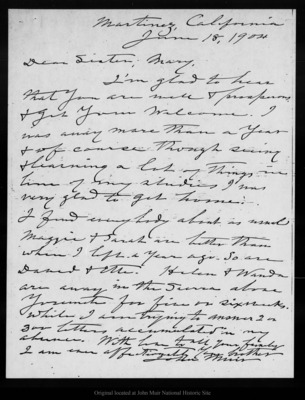 Martinez California
June 18, 1904
Dear Sister, Mary.
I'm glad to hear
that you are well & prosperous
& get your welcome. I
was away more than a year
& of course though seeing
& learning a lot of things in
line of my studies I was
very glad to get home.
I find everybody about as usual
Maggie & Sarah are better than
when I left a year ago. So are
David & Etta. Helen & Wanda
are away in the Sierra above
Yosemite for five or six weeks.
While I am trying to answer 2 or
300 letters accumulated in my
absence. With love to all your family
I am ever affectionately your brother
John Muir
Original located at John Muir National Historic Site